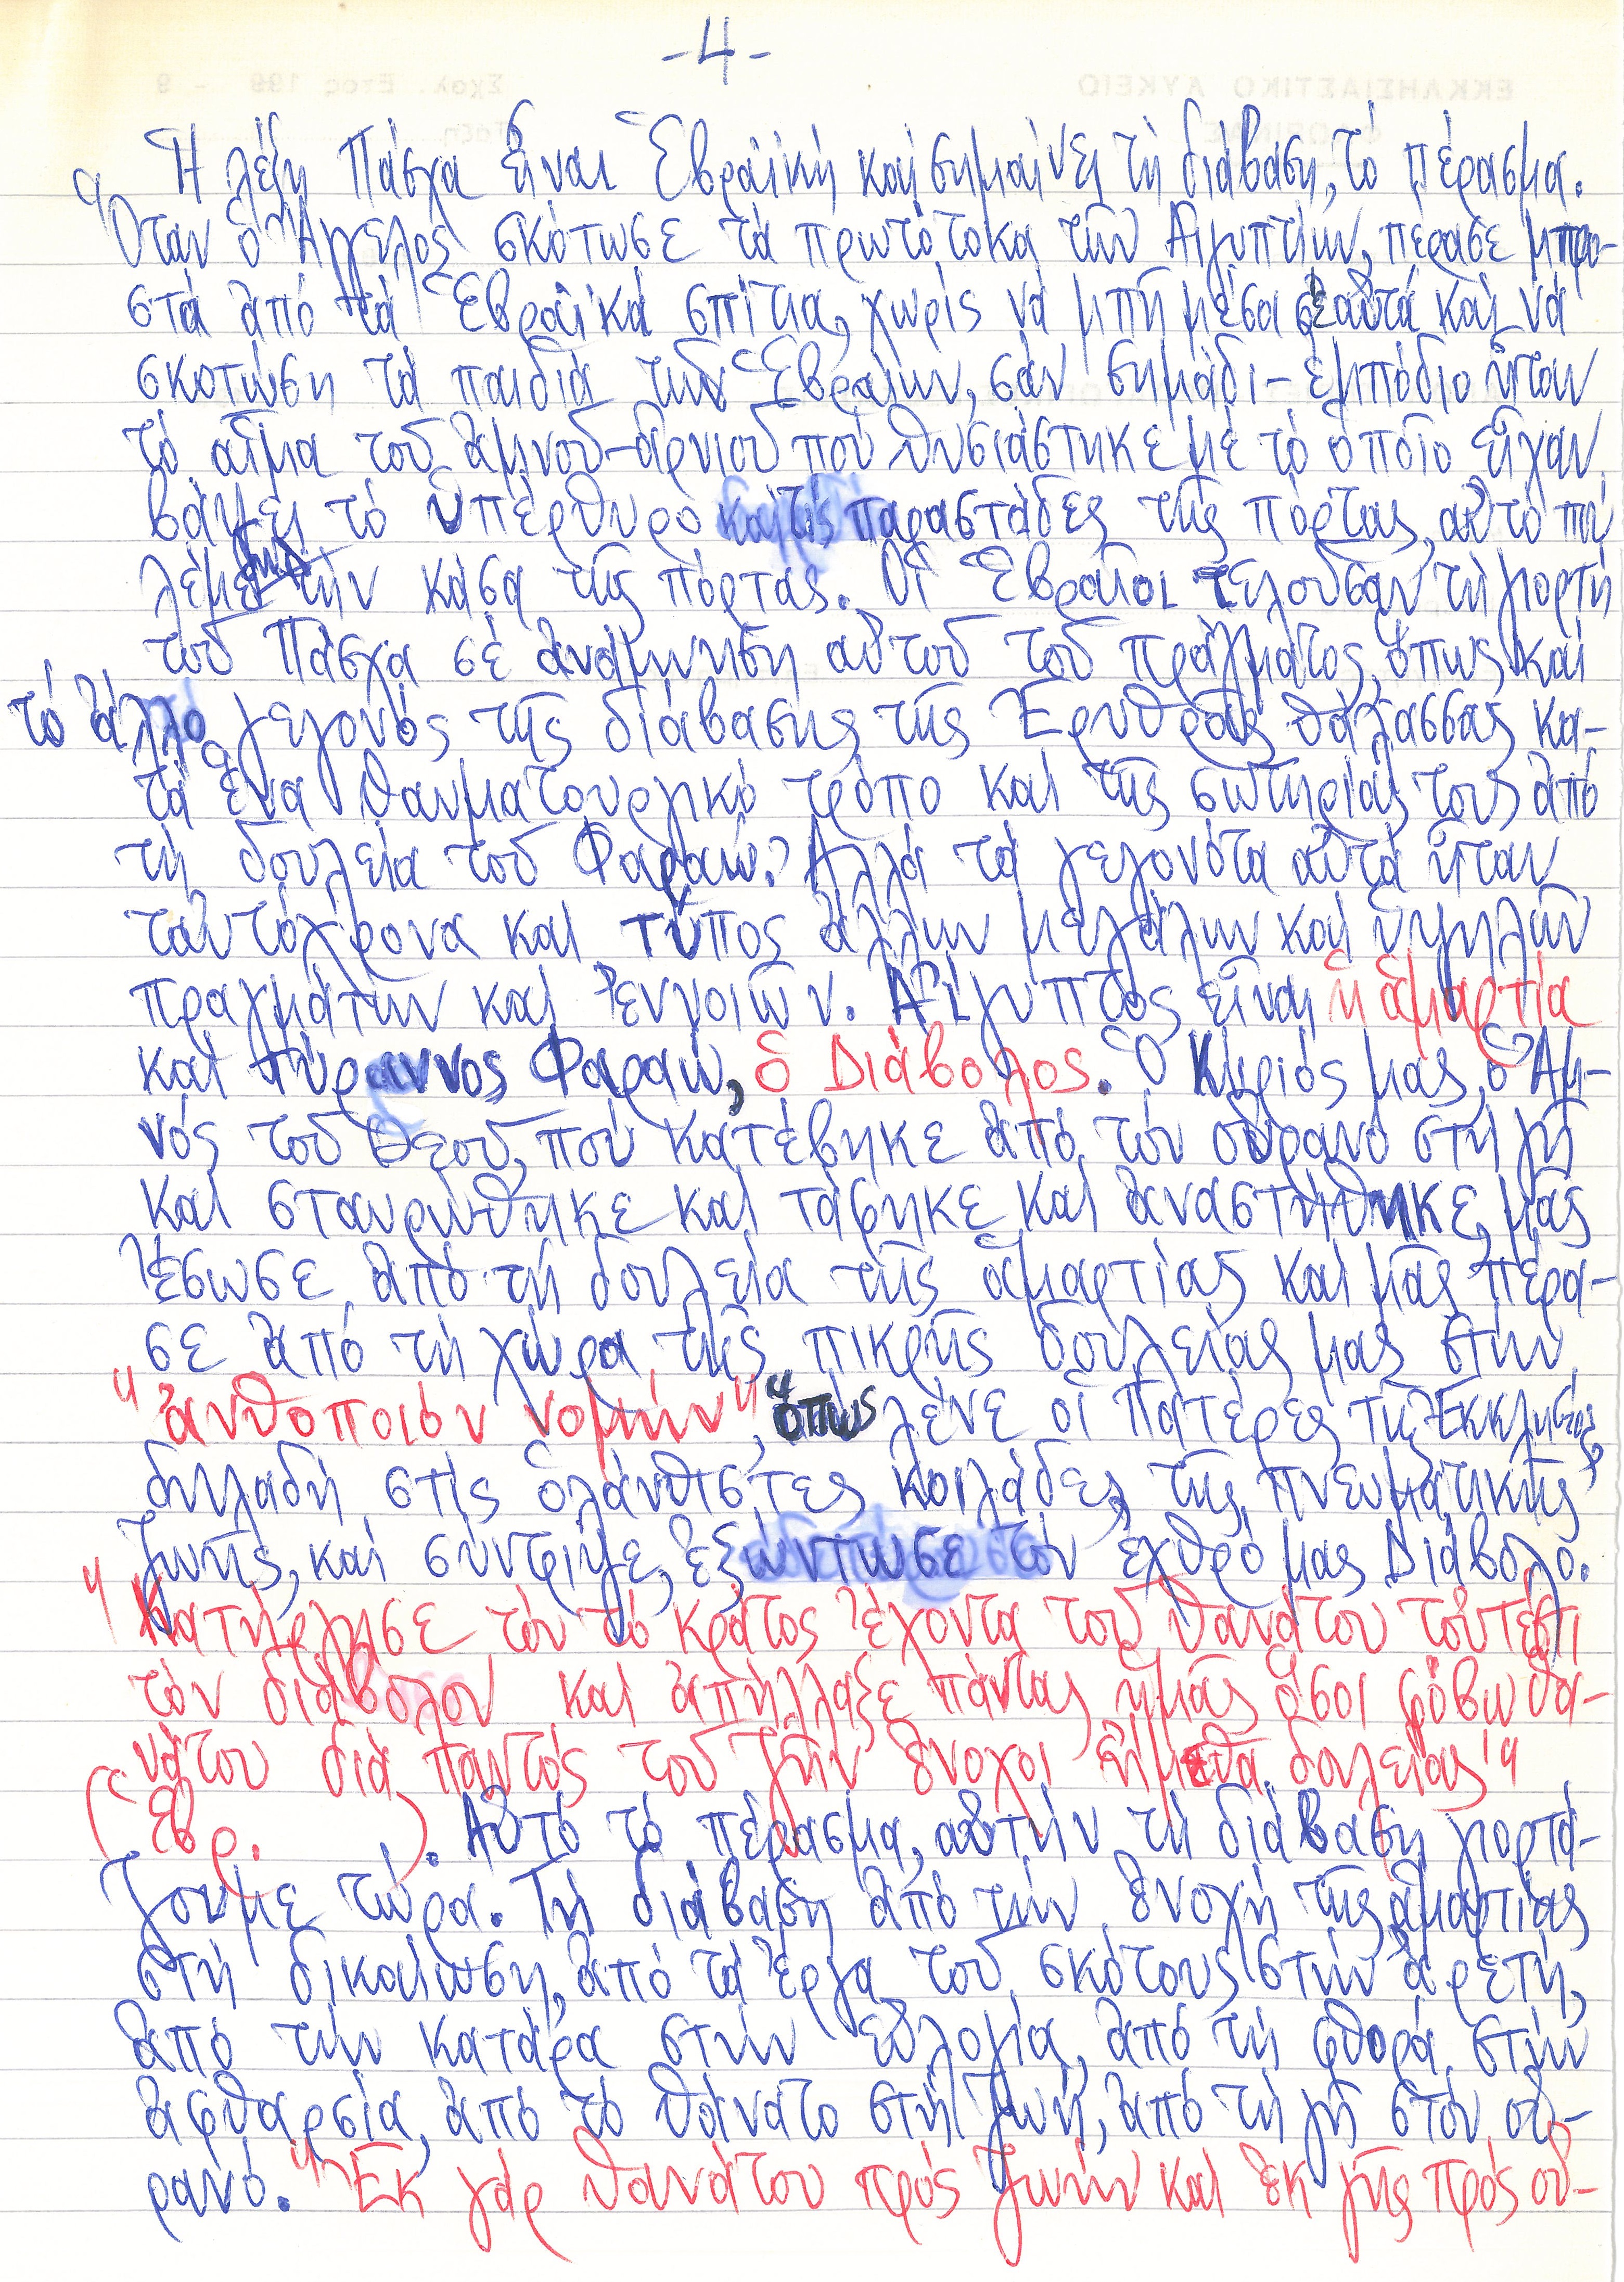 -4-
Ἡ λέξη Πάσχα εἶναι Ἑβραϊκή καί σημαίνει τή διάβαση, τό πέρασμα.
Ὅταν ὁ Ἄγγελος σκότωσε τά πρωτότοκα τῶν Αἰγυπτίων, πέρασε μπρο-
στά ἀπό τά Ἑβραϊκά σπίτια, χωρίς νά μπῆ μέσα σ' αὐτά καί νά
σκοτώση τά παιδιά τῶν Ἑβραίων, σάν σημάδι-ἐμπόδιο ἦταν
τό αἷμα τοῦ ἀμνοῦ-ἀρνιοῦ πού θυσιάστηκε μέ τό ὁποῖο εἶχαν
βάψει τό ὑπέρθυρο καί τίς παραστάδες τῆς πόρτας, αὐτό πού
λέμε τήν κάσα τῆς πόρτας. Οἱ Ἑβραῖοι τελοῦσαν τή γιορτή
τοῦ Πάσχα σέ ἀνάμνηση αὐτοῦ τοῦ πράγματος, ὅπως καί
τό ἄλλο γεγονός τῆς διάβασης τῆς Ἐρυθρᾶς θάλασσας κα-
τά ἕνα θαυματουργικό τρόπο καί τῆς σωτηρίας τους ἀπό
τή δουλεία τοῦ Φαραώ. Ἀλλά τά γεγονότα αὐτά ἦταν
ταυτόχρονα καί τύπος ἄλλων μεγάλων καί ὑψηλῶν
πραγμάτων καί ἐννοιῶν. Αἴγυπτος εἶναι ἡ ἁμαρτία
καί τύραννος Φαραώ, ὁ Διάβολος. Ὁ Κύριός μας, ὁ Ἀμ-
νός τοῦ Θεοῦ, πού κατέβηκε ἀπό τόν οὐρανό στή γῆ
καί σταυρώθηκε καί τάφηκε καί ἀναστήθηκε, μᾶς
ἔσωσε ἀπό τή δουλεία τῆς ἁμαρτίας καί μᾶς πέρα-
σε ἀπό τή χώρα τῆς πικρῆς δουλείας μας στήν
"ἀνθοποιόν νομήν", ὅπως λένε οἱ Πατέρες τῆς Ἐκκλησίας,
δηλαδή στίς ὁλάνθιστες κοιλάδες τῆς πνευματικῆς
ζωῆς, καί σύντριψε, ἐξώντωσε τόν ἐχθρό μας Διάβολο.
"Κατήργησε τόν τό κράτος ἔχοντα τοῦ θανάτου τοὐτέστι
τόν διάβολον καί ἀπήλλαξε πάντας ἡμᾶς ὅσοι φόβῳ θα-
νάτου διά παντός τοῦ ζῆν ἔνοχοι ἤμεθα δουλείας"
(Ἑβρ. ). Αὐτό τό πέρασμα, αὐτήν τή διάβαση γιορτά-
ζουμε τώρα. Τή διάβαση ἀπό τήν ἐνοχή τῆς ἁμαρτίας
στή δικαίωση, ἀπό τά ἔργα τοῦ σκότους στήν ἀρετή,
ἀπό τήν κατάρα στήν εὐλογία, ἀπό τή φθορά στήν
ἀφθαρσία, ἀπό τό θάνατο στή ζωή, ἀπό τή γῆ στόν οὐ-
ρανό. "Ἐκ γάρ θανάτου πρός ζωήν καί ἐκ γῆς πρός οὐ-